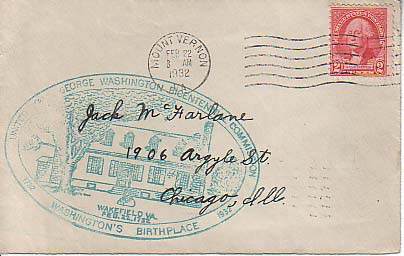 MOUNT VERNON
FEB 22
8 AM
1932
2 2
GEORGE WASHINGTON BICENTENNIAL COMMISSION
Jack McFarlane
1906 Argyle St.
Chicago, Ill.
WAKEFIELD, VA.
FEB. 22, 1732
1732 WASHINGTON'S BIRTHPLACE 1932